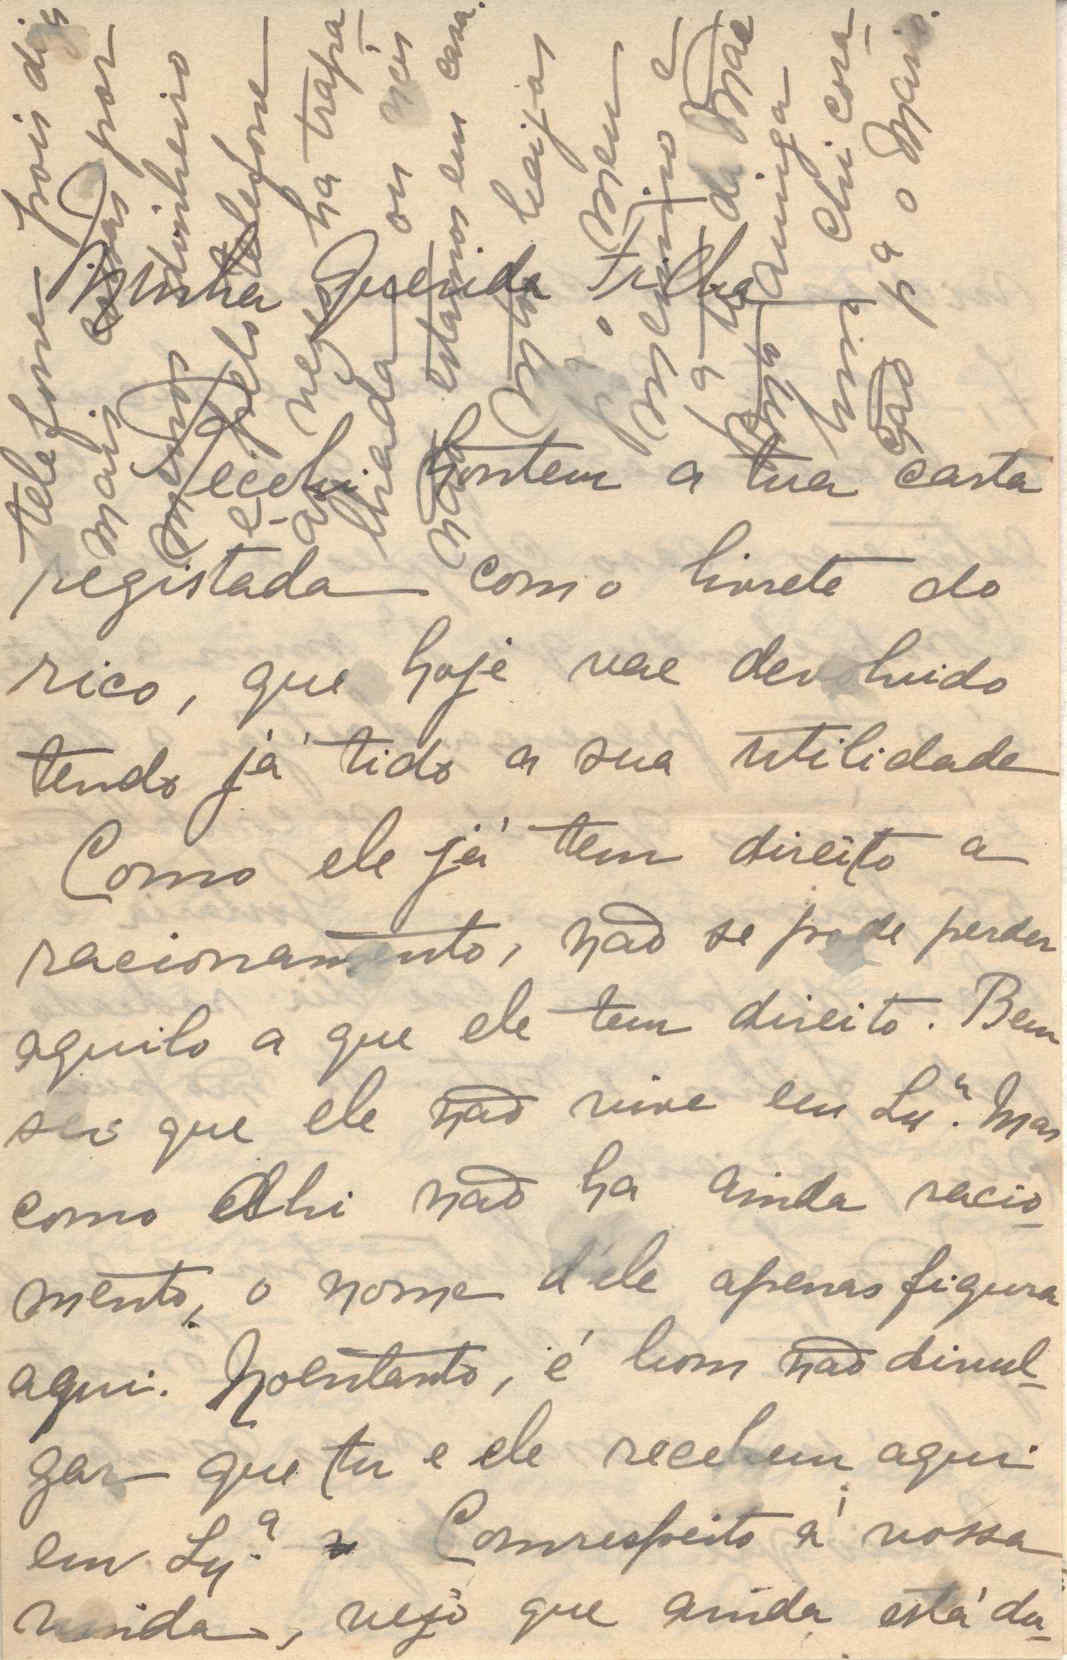 Minha Querida Filha
Recebi hontem a tua carta
registada como livrete do
rico, que hoje vae devolvido
tendo já tido a sua utilidade
Como ele já tem direito a
racionamento, não se pode perder
aquilo a que ele tem direito. Bem
sei que ele não vive em Lxª. Mas
como Ahi não ha ainda racio-
mento, o nome d'ele apenas figura
aqui. Noentanto, é bom não divul-
gar que tu e ele recebem aqui
em Lxª. Comrespeito á vossa
vinda, vejo que ainda está da-
telefone pois diz
mais coisas por
menos dinheiro
e pelo telefone
ás vezes ha trapa-
lhada ou nós
não estamos em casa.
Mtos beijos
pª o meu
menino e
pª ti da Mãe
mto amiga
Um chi cora-
ção pª o Mario